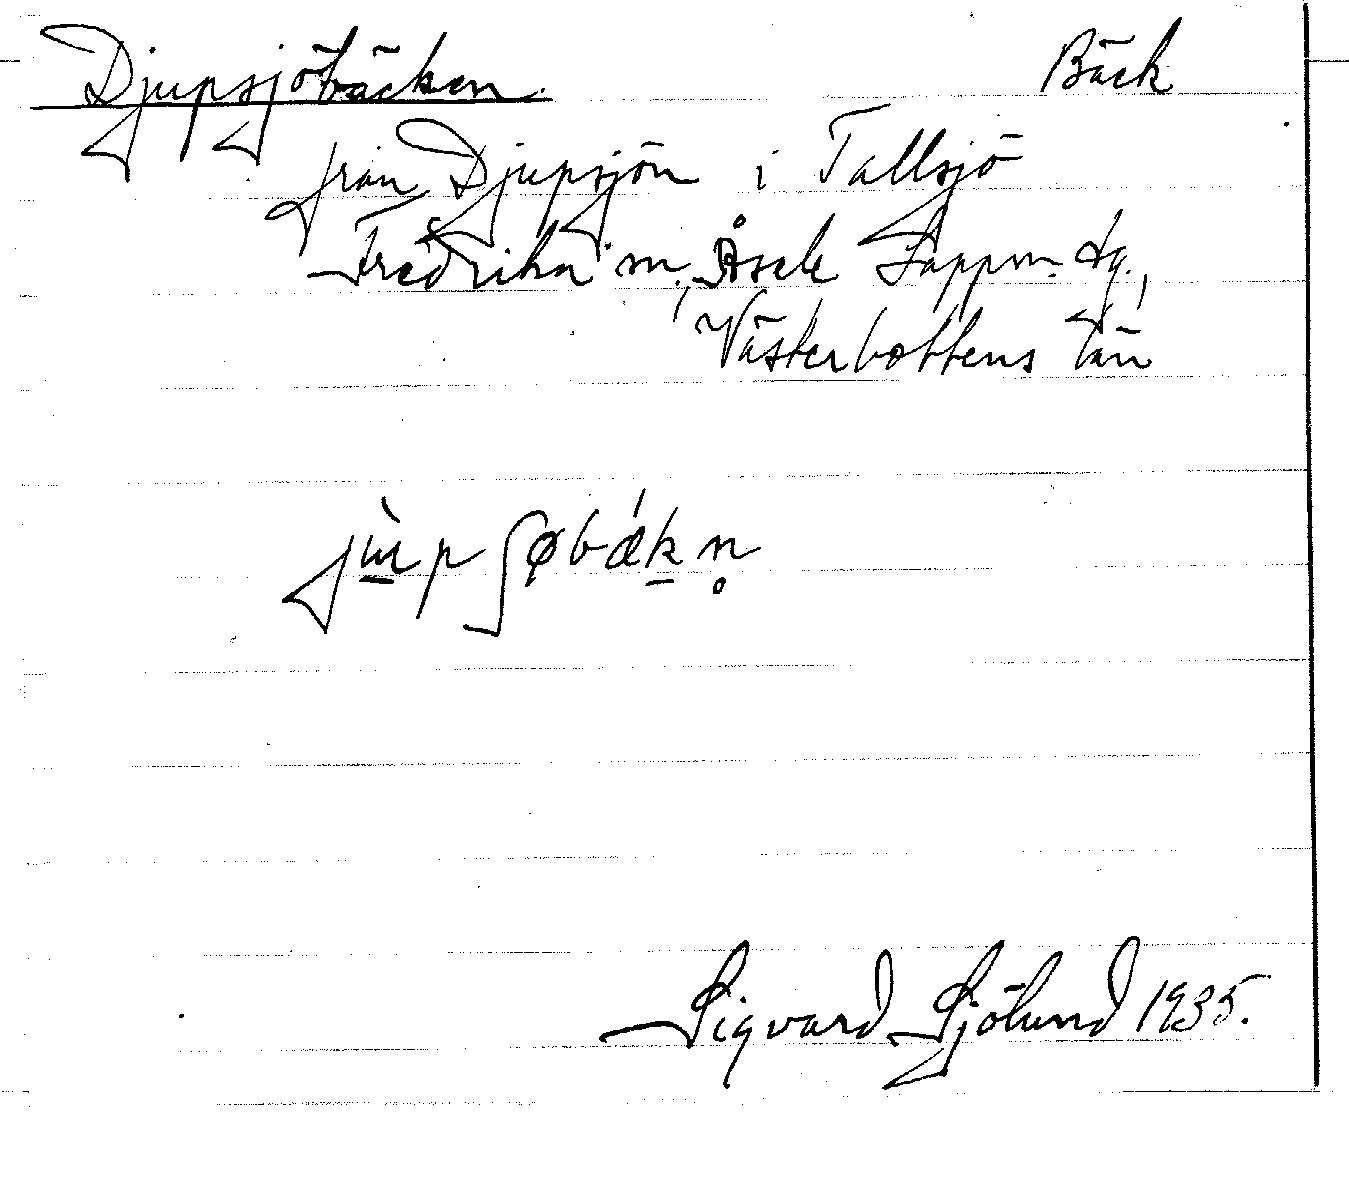 Djupsjöbäcken. Bäck
från Djupsjön i Tallsjö
Fredrika sn., Åsele Lappm. dg.,
Västerbottens län
jùpʃøbǽkn̥
Sigvard Sjölund 1935.